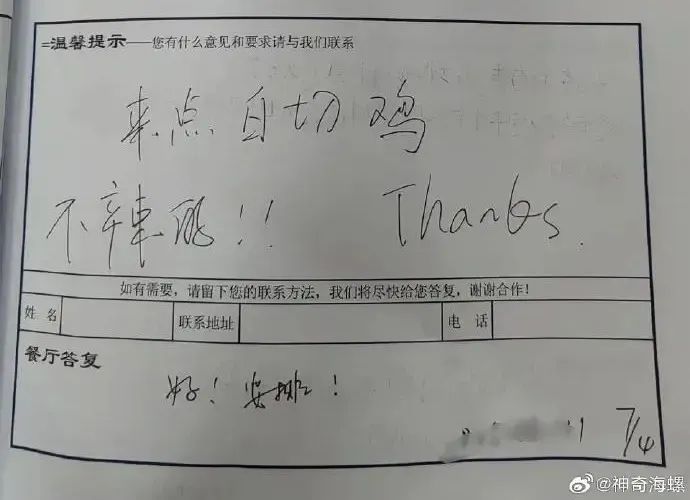 =温馨提示——您有什么意见和要求请与我们联系
来点白切鸡
不辣的!! Thanks.
如有需要,请留下您的联系方法,我们将尽快给您答复,谢谢合作!
姓名 联系地址 电话
餐厅答复
好!安排!
7/4
@神奇海螺